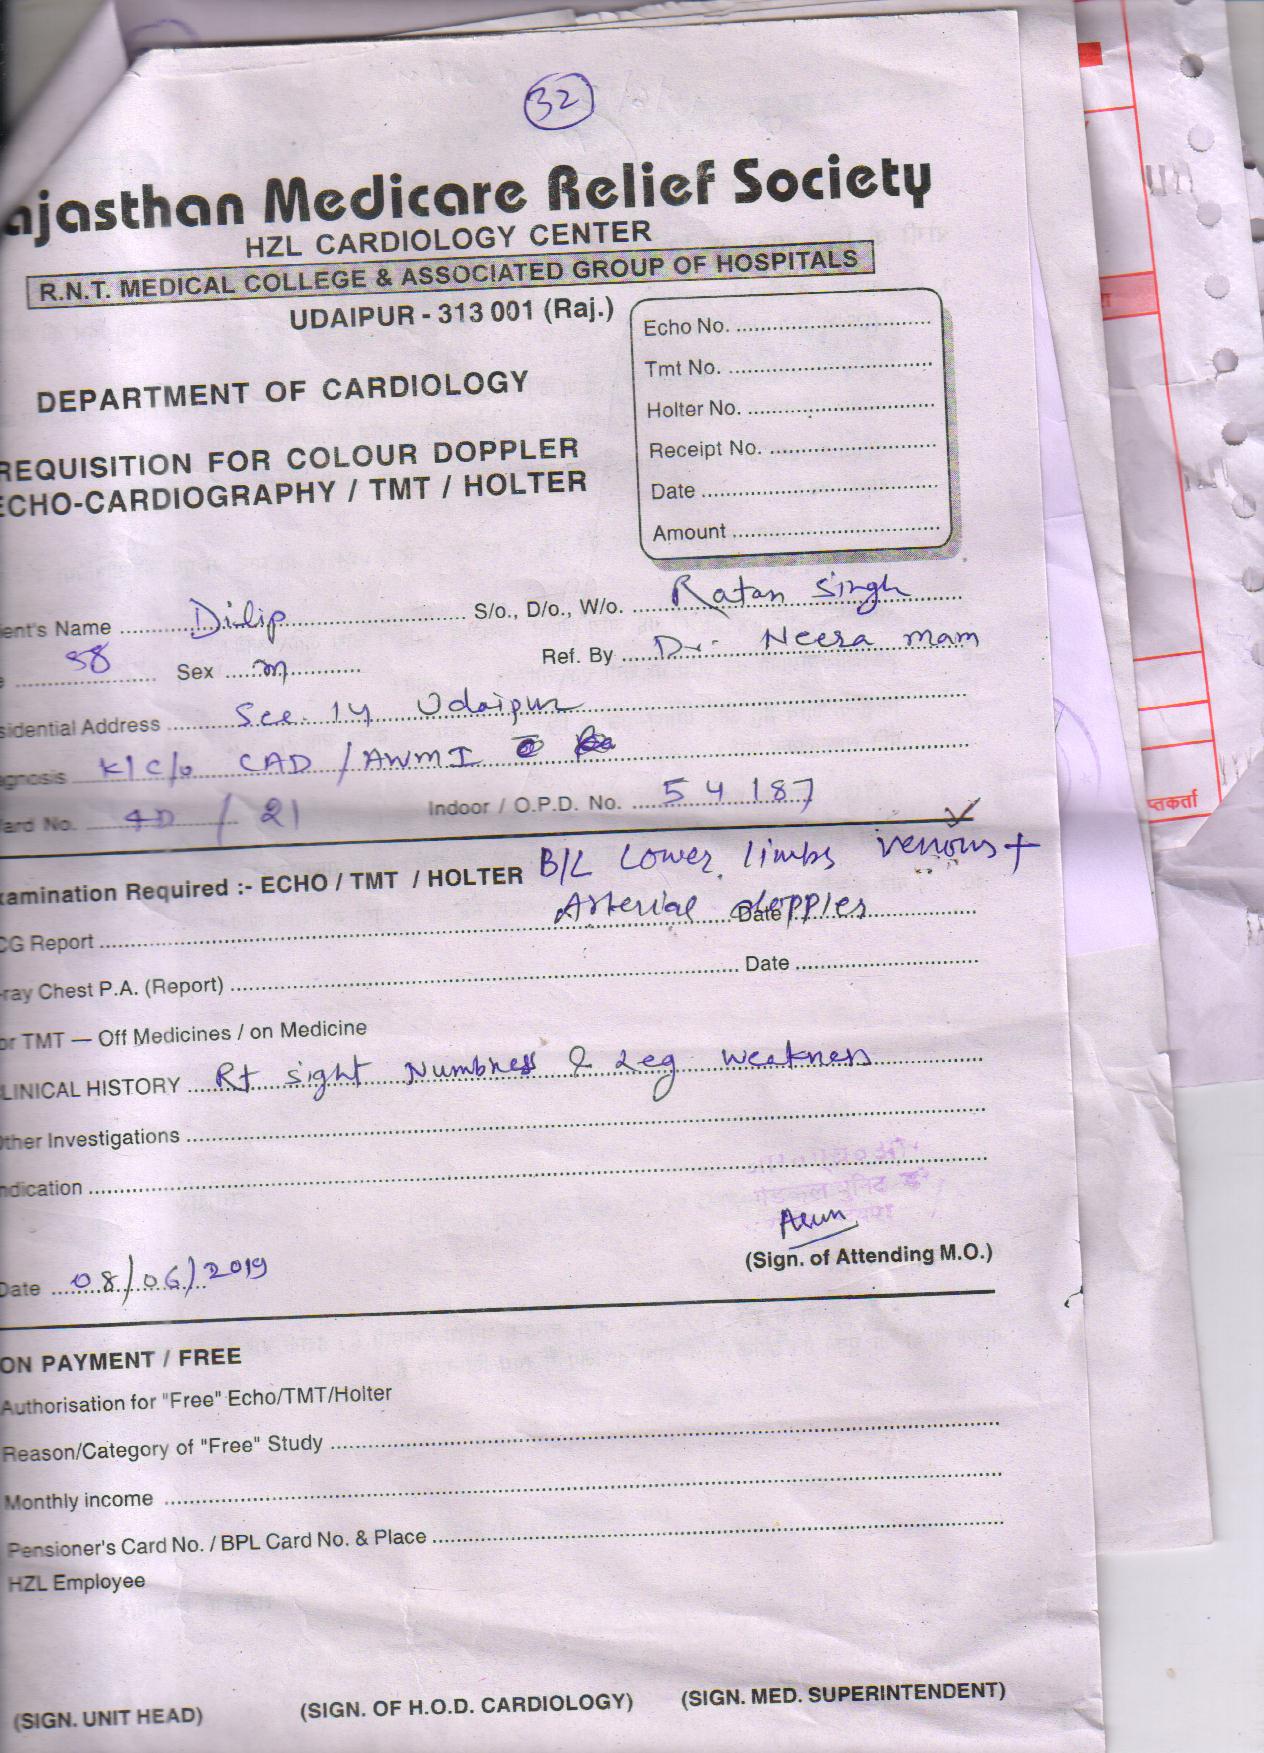 32
ajasthan Medicare Relief Society
HZL CARDIOLOGY CENTER
R.N.T. MEDICAL COLLEGE & ASSOCIATED GROUP OF HOSPITALS
UDAIPUR - 313 001 (Raj.)
Echo No.
Tmt No.
Holter No.
Receipt No.
Date
Amount
DEPARTMENT OF CARDIOLOGY
REQUISITION FOR COLOUR DOPPLER
ECHO-CARDIOGRAPHY / TMT / HOLTER
ient's Name Dilip S/o., D/o., W/o. Ratan Singh
e 58 Sex m Ref. By Dr. Neera mam
sidential Address Sec. 14 Udaipur
agnosis K/c/o CAD / AWMI
ard No. 4D / 21 Indoor / O.P.D. No. 54187
xamination Required :- ECHO / TMT / HOLTER B/L Lower limbs venous +
Arterial doppler
CG Report Date
-ray Chest P.A. (Report) Date
or TMT — Off Medicines / on Medicine
LINICAL HISTORY Rt sight Numbness & Leg weakness
Other Investigations
ndication
मेडिकल युनिट
Arun
(Sign. of Attending M.O.)
Date 08/06/2019
ON PAYMENT / FREE
Authorisation for "Free" Echo/TMT/Holter
Reason/Category of "Free" Study
Monthly income
Pensioner's Card No. / BPL Card No. & Place
HZL Employee
(SIGN. UNIT HEAD) (SIGN. OF H.O.D. CARDIOLOGY) (SIGN. MED. SUPERINTENDENT)
प्तकर्ता